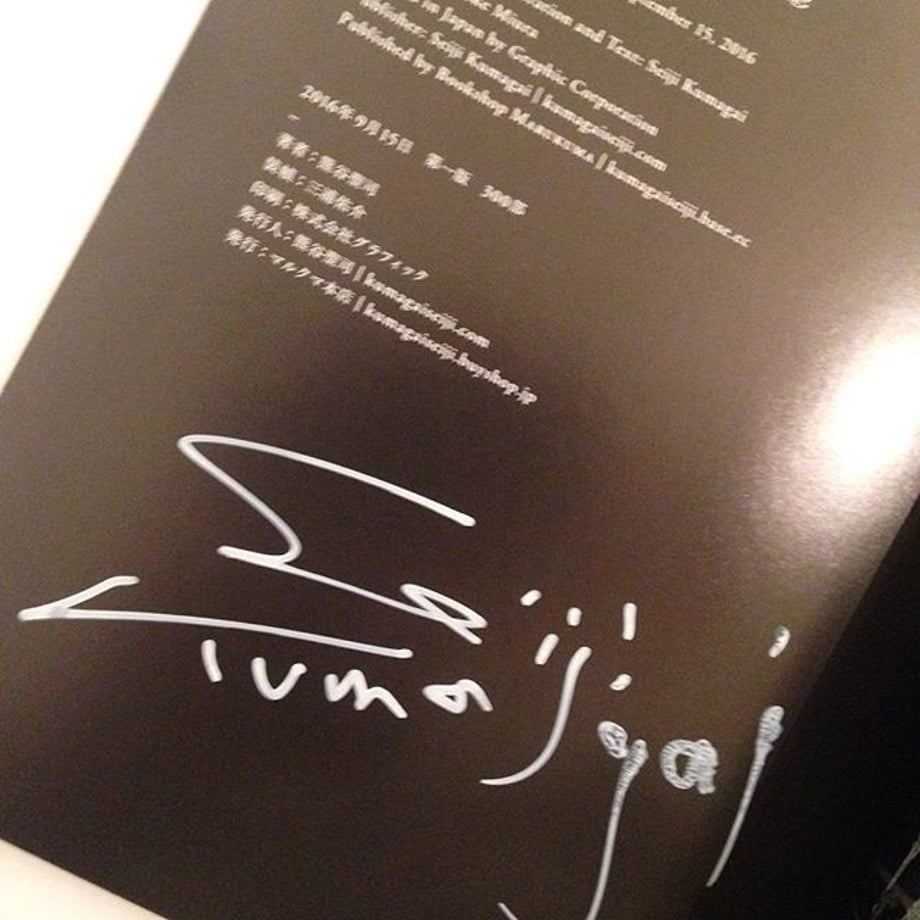 15, 2016
and Text: Seiji Kumagai
Miura
in Japan by Graphic Corporation
Seiji Kumagai | kumagaiseiji.com
Published by Bookshop MARUKUMA | kumagaiseiji.base.ec
2016年9月15日 第一版 300部
–
著者：熊谷聖司
装幀：三浦佑介
印刷：株式会社グラフィック
発行人：熊谷聖司 | kumagaiseiji.com
発行：マルクマ本店 | kumagaiseiji.buyshop.jp
Seiji
Kumagai